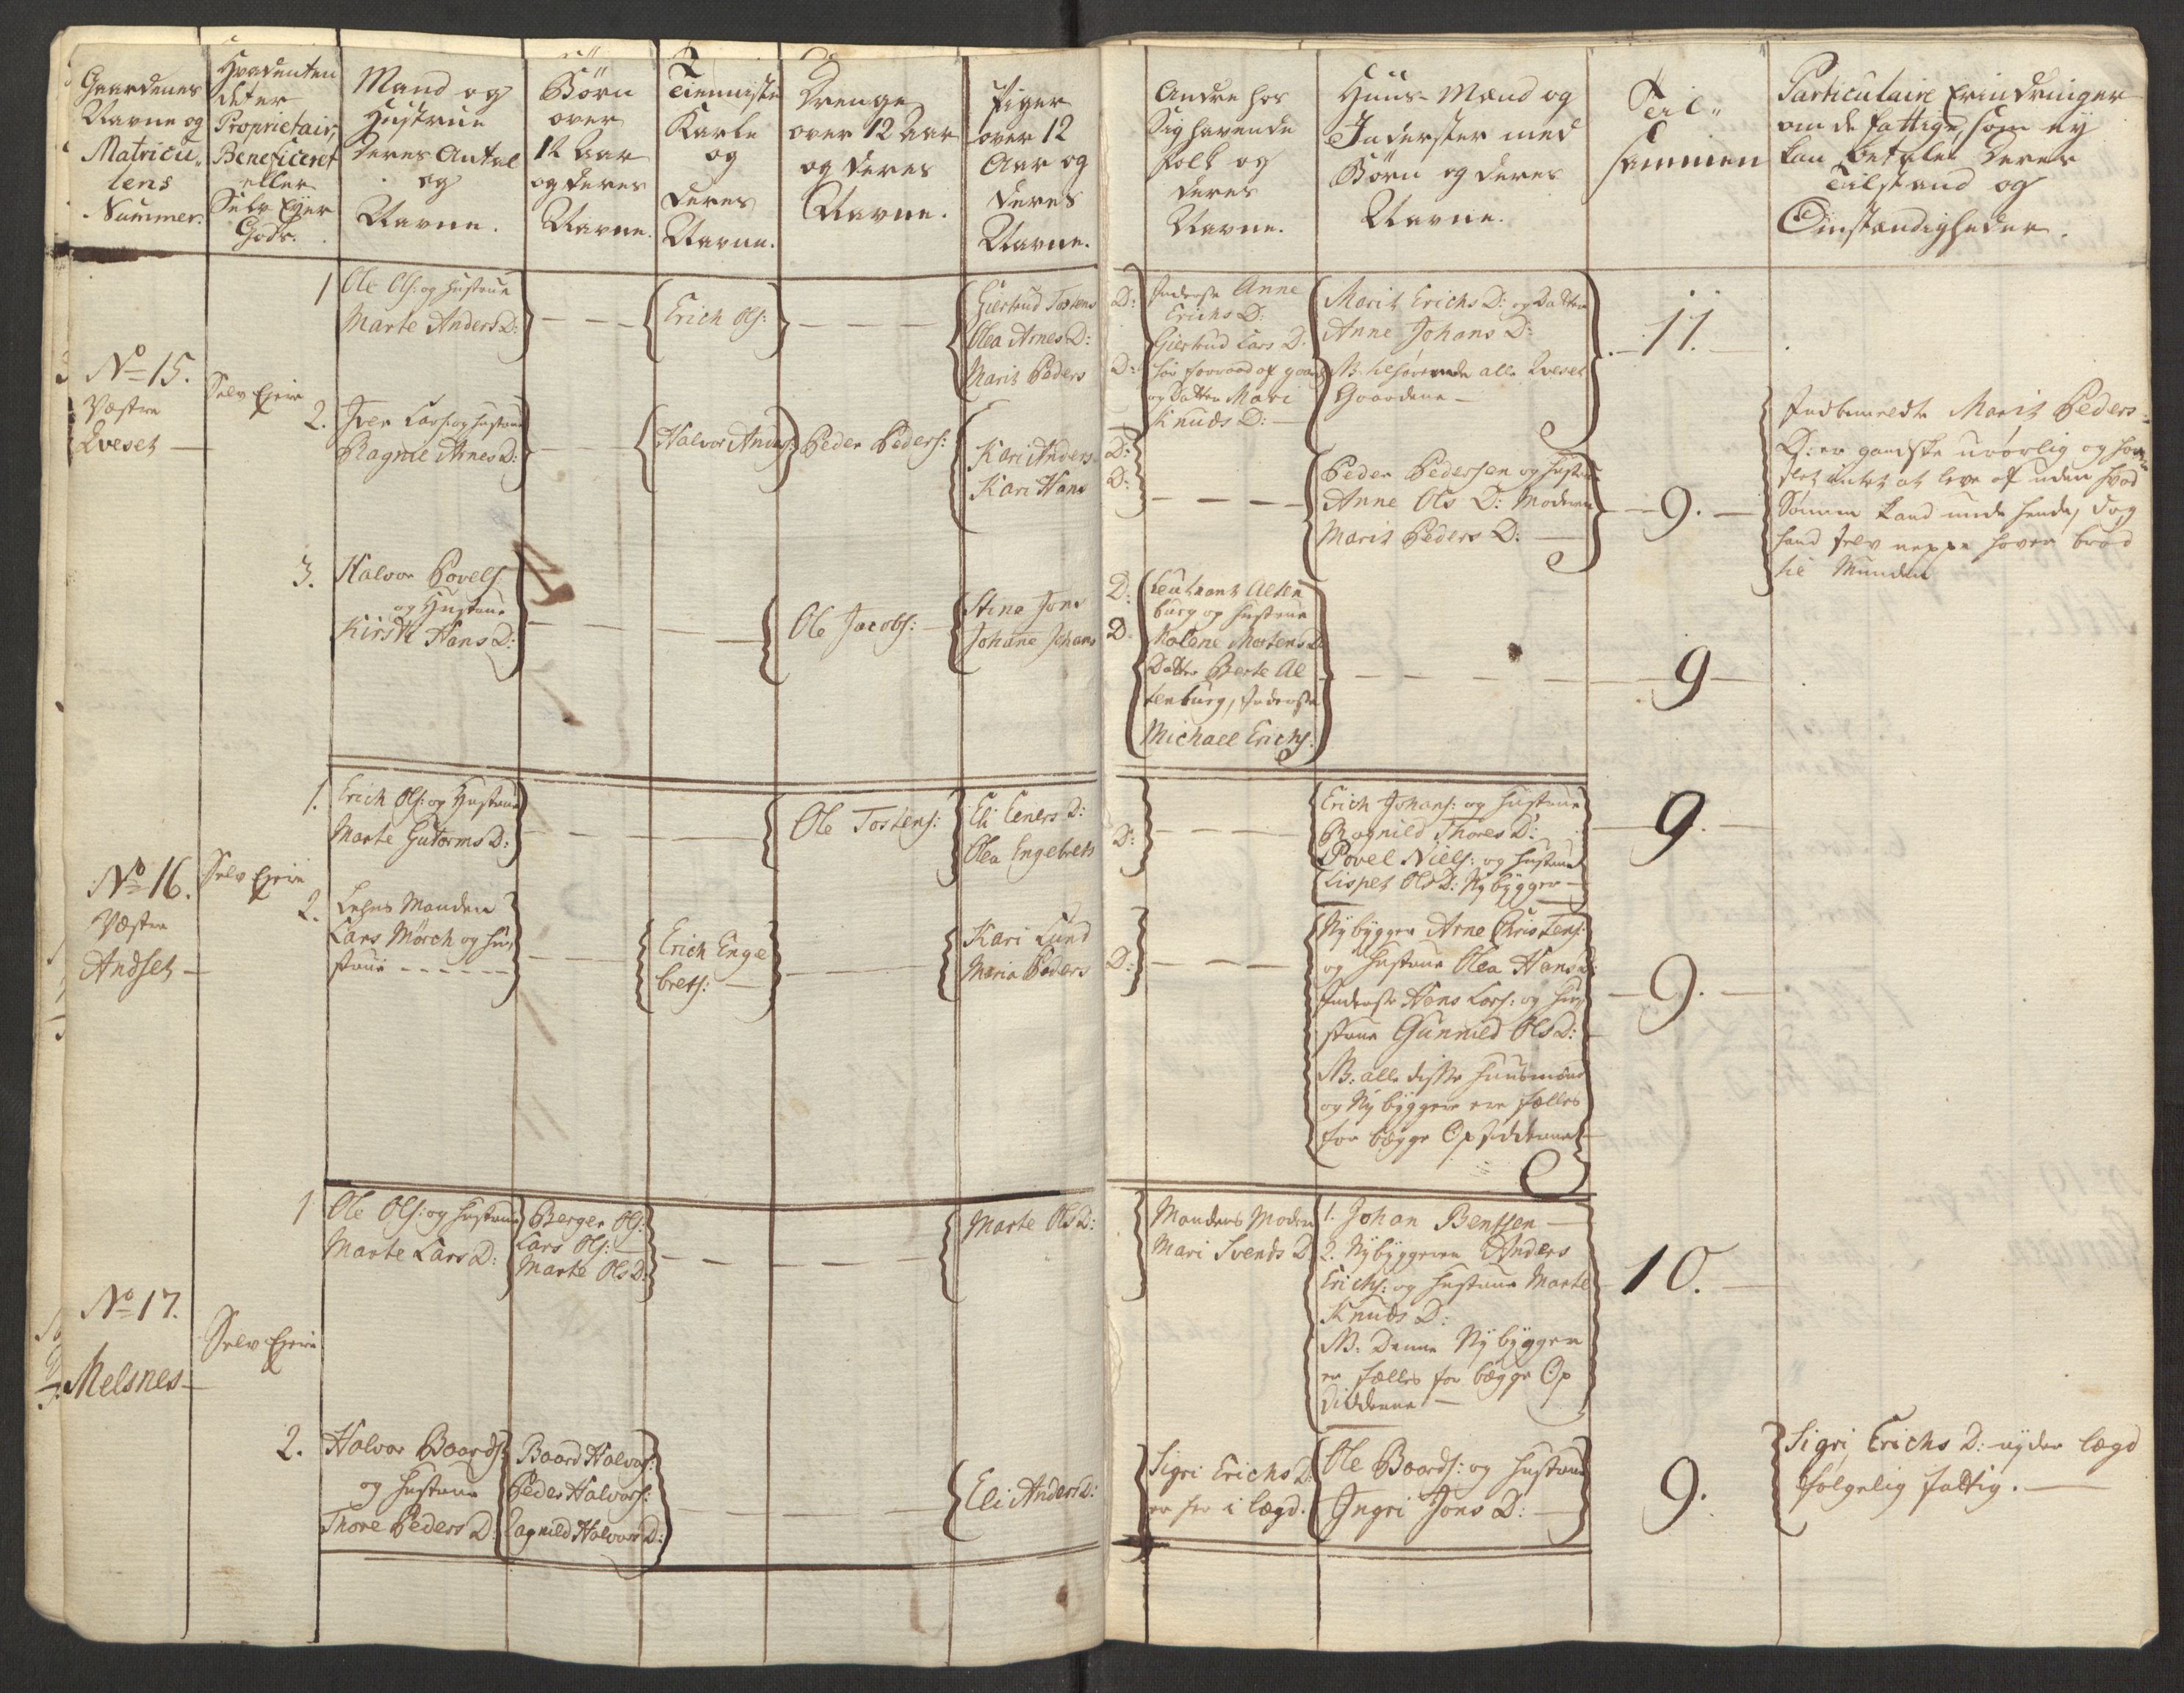 Gaardenes
Navne og
Matricu-
lens
Nummer.
Hvadenten
det er
Proprietair,
Beneficeret
eller
Selv Ejer
Gods.
Mand og
Hustrue
deres Antal
og
Navne.
Børn
over
12 Aar
og deres
Navne.
Tienniste
Karle
og
deres
Navne.
Drenge
over 12 Aar
og deres
Navne.
Piger
over 12
Aar og
deres
Navne.
Andre hos
Sig havende
folk og
deres
Navne.
Huus-Mænd og
Inderster med
Børn og deres
Navne.
Til-
sammen
Particulaire Erindringer
om de fattige, som ey
kan betale deres
Tilstand og
Omstændigheder.
No 15.
Vestre
Qveset
Selv Ejere
1 Ole Ols: og Hustrue
Marte Anders D:
Erich Ols:
Giertrud Tostens D:
Olea Arnes D:
Marit Peders D:
Inderste Anne
Erichs D:
Giertrud Lars D.
og Datter Mari
Knuds D:
Marit Erichs D: og Datter
Anne Johans D:
NB. tilhørende alle Qveset
Gaardene
11.
2. Iver Lars: og Hustrue
Ragnie Arnes D:
Halvor Anders:
Peder Peders:
Kari Anders D:
Kari Hans D:
Peder Pedersen og Hustrue
Anne Ols D: Moderen
Marit Peders D:
9.
Indbemeldte Marit Peders
D: er gandske urørlig og har
slet intet at leve af uden hvad
Sønnen kand unde hende, dog
hand selv neppe haver brød
til Munden
3. Halvor Povels:
og Hustrue
Kirsti Hans D:
Ole Jacobs:
Stina Jons D:
Johane Johans D:
Leutnant Alten
burg og Hustrue
Malene Mortens D:
Datter Berte Al
tenburg, Inderste
Michael Erichs:
9
No 16.
Vestre
Andset
Selv Ejere
1. Erich Ols: og Hustrue
Marte Gutorms D:
Ole Tostens:
Eli Eners D:
Olea Engebrets D:
Erich Johans: og Hustrue
Ragnild Thores D:
Povel Niels: og Hustrue
Lispet Ols D: Nybygger
9.
2. Lehns Manden
Lars Mörch og Hu
strue
Erich Enge
brets:
Kari Lund
Maria Peders D:
Nybygger Arne Christens:
og Hustrue Olea Hans D:
Inderste Hans Lars: og Hu
strue Gunnild Ols D:
NB: alle disse Huusmænd
og Nybyggere ere fælles
for begge Opsidderne
9.
No 17.
Melsnes
Selv Ejere
1 Ole Ols: og Hustrue
Marte Lars D:
Berger Ols:
Lars Ols:
Marte Ols D:
Marte Ols D:
Mandens Moder
Mari Svends D
1. Johan Bentsen
2. Nybyggeren Anders
Erichs: og Hustrue Marte
Knuds D:
NB: Denne Nybygger
er fælles for begge Op
sidderne
10.
2. Halvor Baards:
og Hustrue
Thore Peders D:
Baard Halvors:
Peder Halvors:
Ragnild Halvors D:
Eli Anders D:
Sigri Erichs D:
er her i Lægd.
Ole Baards: og Hustrue
Ingri Jons D:
9.
Sigri Erichs D: nyder Lægd
følgelig fattig.